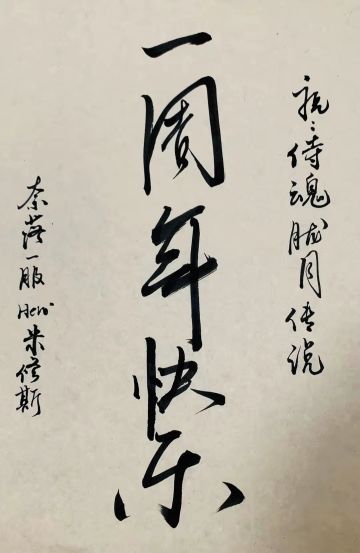 祝：侍魂胧月传说
一周年快乐
奈落一服米修斯